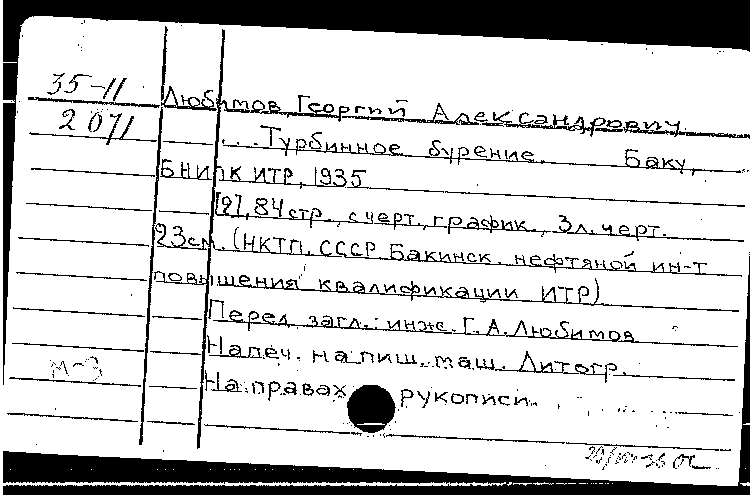 35-11
Любимов, Георгий Александрович
2071
... Турбинное бурение. Баку,
БНИПК ИТР, 1935
[2], 84 стр., с черт., график., 3 л. черт.
23 см. (НКТП. СССР. Бакинск. нефтяной ин-т
повышения квалификации ИТР)
Перед загл.: инж. Г. А. Любимов
Напеч. на пиш. маш. Литогр.
М-3
На правах рукописи.